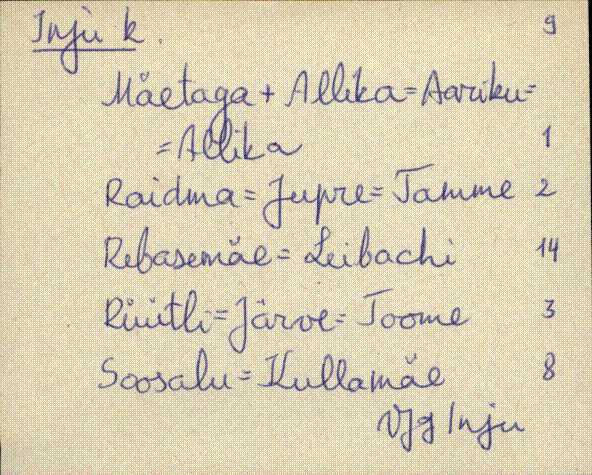 Inju k. 9
Mäetaga + Allika = Aariku =
= Allika 1
Raidma = Jupre = Tamme 2
Rebasemäe = Leibachi 14
Rüütli = Järve = Toome 3
Soosalu = Kullamäe 8
Vjg Inju